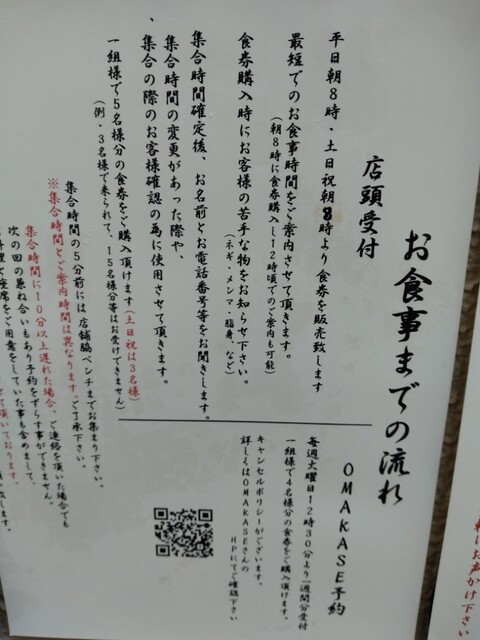 お食事までの流れ
店頭受付
平日朝8時・土日祝朝8時より食券を販売致します
最短でのお食事時間をご案内させて頂きます。
(朝8時に食券購入し12時頃でのご案内も可能)
食券購入時にお客様の苦手な物をお知らせ下さい。
(ネギ・メンマ・脂身、など)
集合時間確定後、お名前とお電話番号等をお聞きします。
集合時間の変更があった際や、
集合の際のお客様確認の為に使用させて頂きます。
一組様で5名様分の食券をご購入頂けます(土日祝は3名様)
(例・3名様で来られて、15名様分等はお受けできません)
集合時間の5分前には店舗脇ベンチまでお集まり下さい。
※集合時間とご案内時間は異なります。ご了承下さい。
集合時間に10分以上遅れた場合、ご連絡を頂いた場合でも
次の回の兼ね合いもあり予約をずらす事ができません。
料理と座席をご用意をしていた事も含めまして、
て頂いております。
OMAKASE予約
毎週火曜日12時30分より一週間分受付
一組様で4名様分の食券をご購入頂けます。
キャンセルポリシーがございます。
詳しくはOMAKASEさんの
HPにてご確認下さい
お声かけ下さい